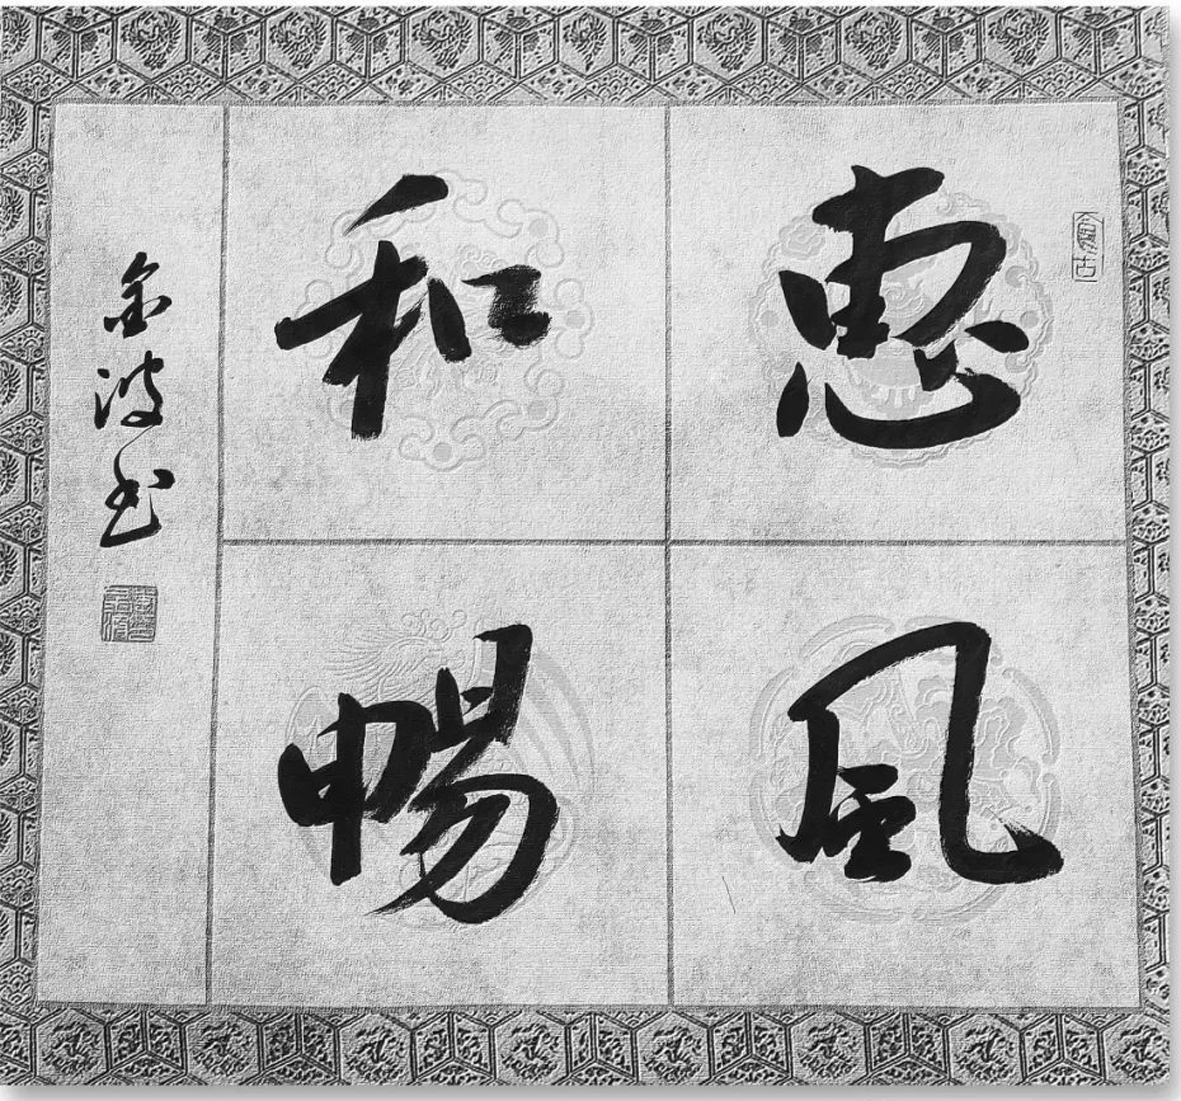 惠風
和暢
金波书